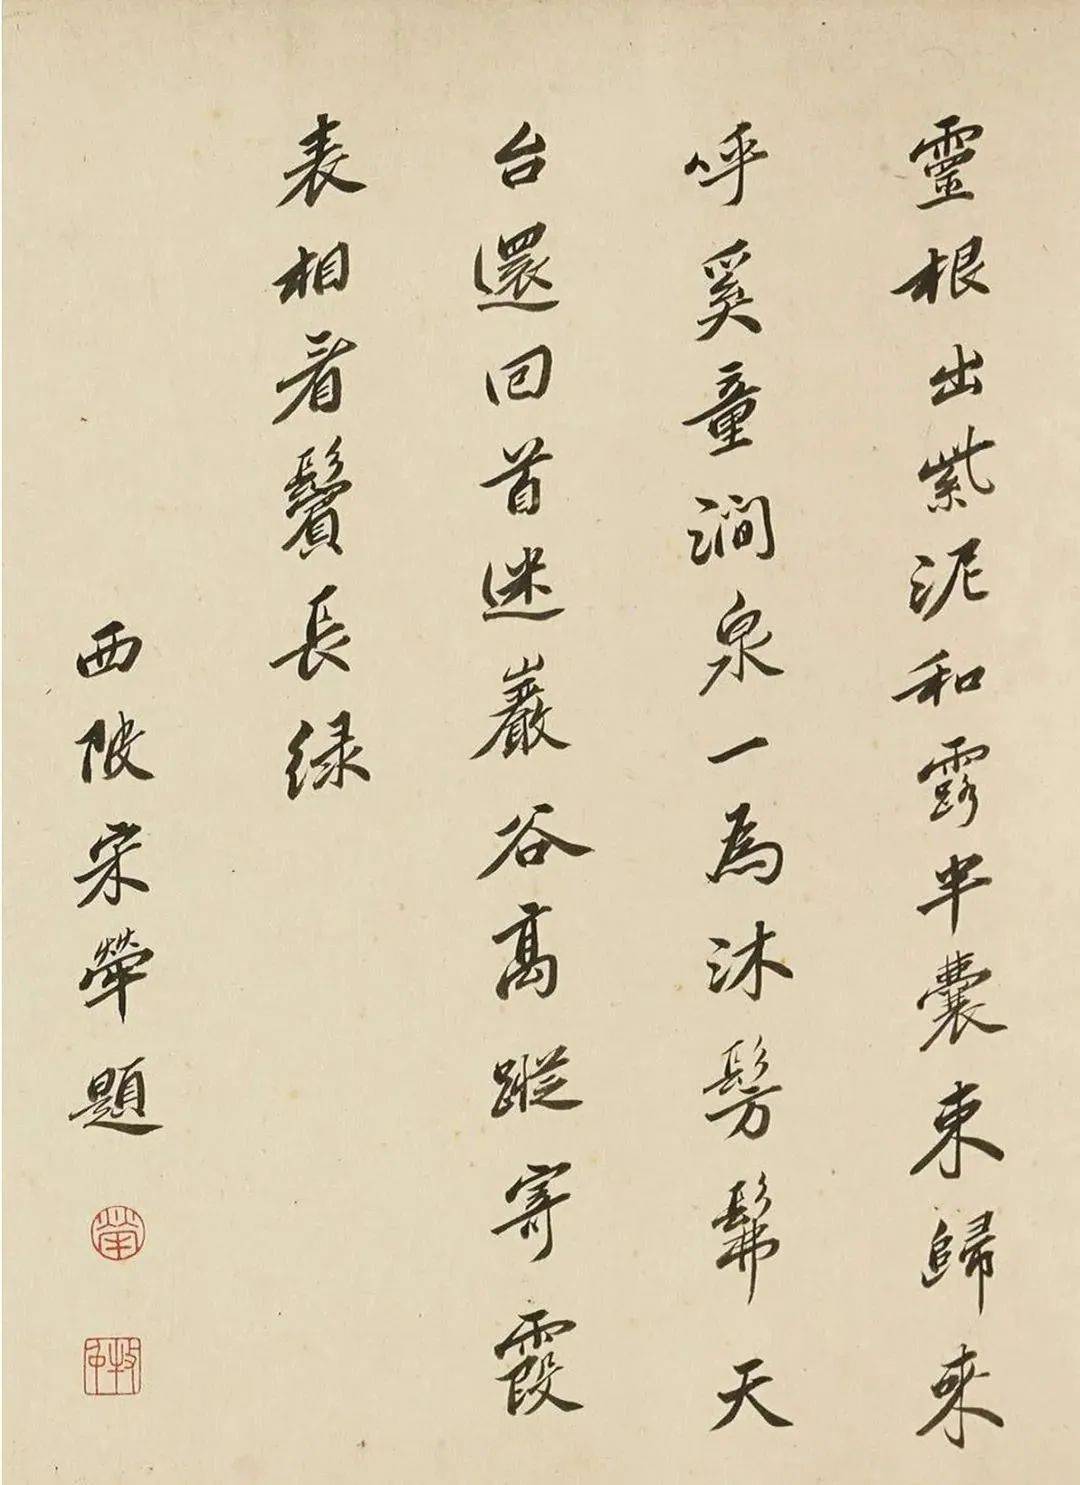 靈根出紫泥和露半囊束歸來
呼奚童澗泉一為沐髣髴天
台還回首迷巖谷高蹤寄霞
表相看鬢長緑
西陂宋犖題
犖
牧仲